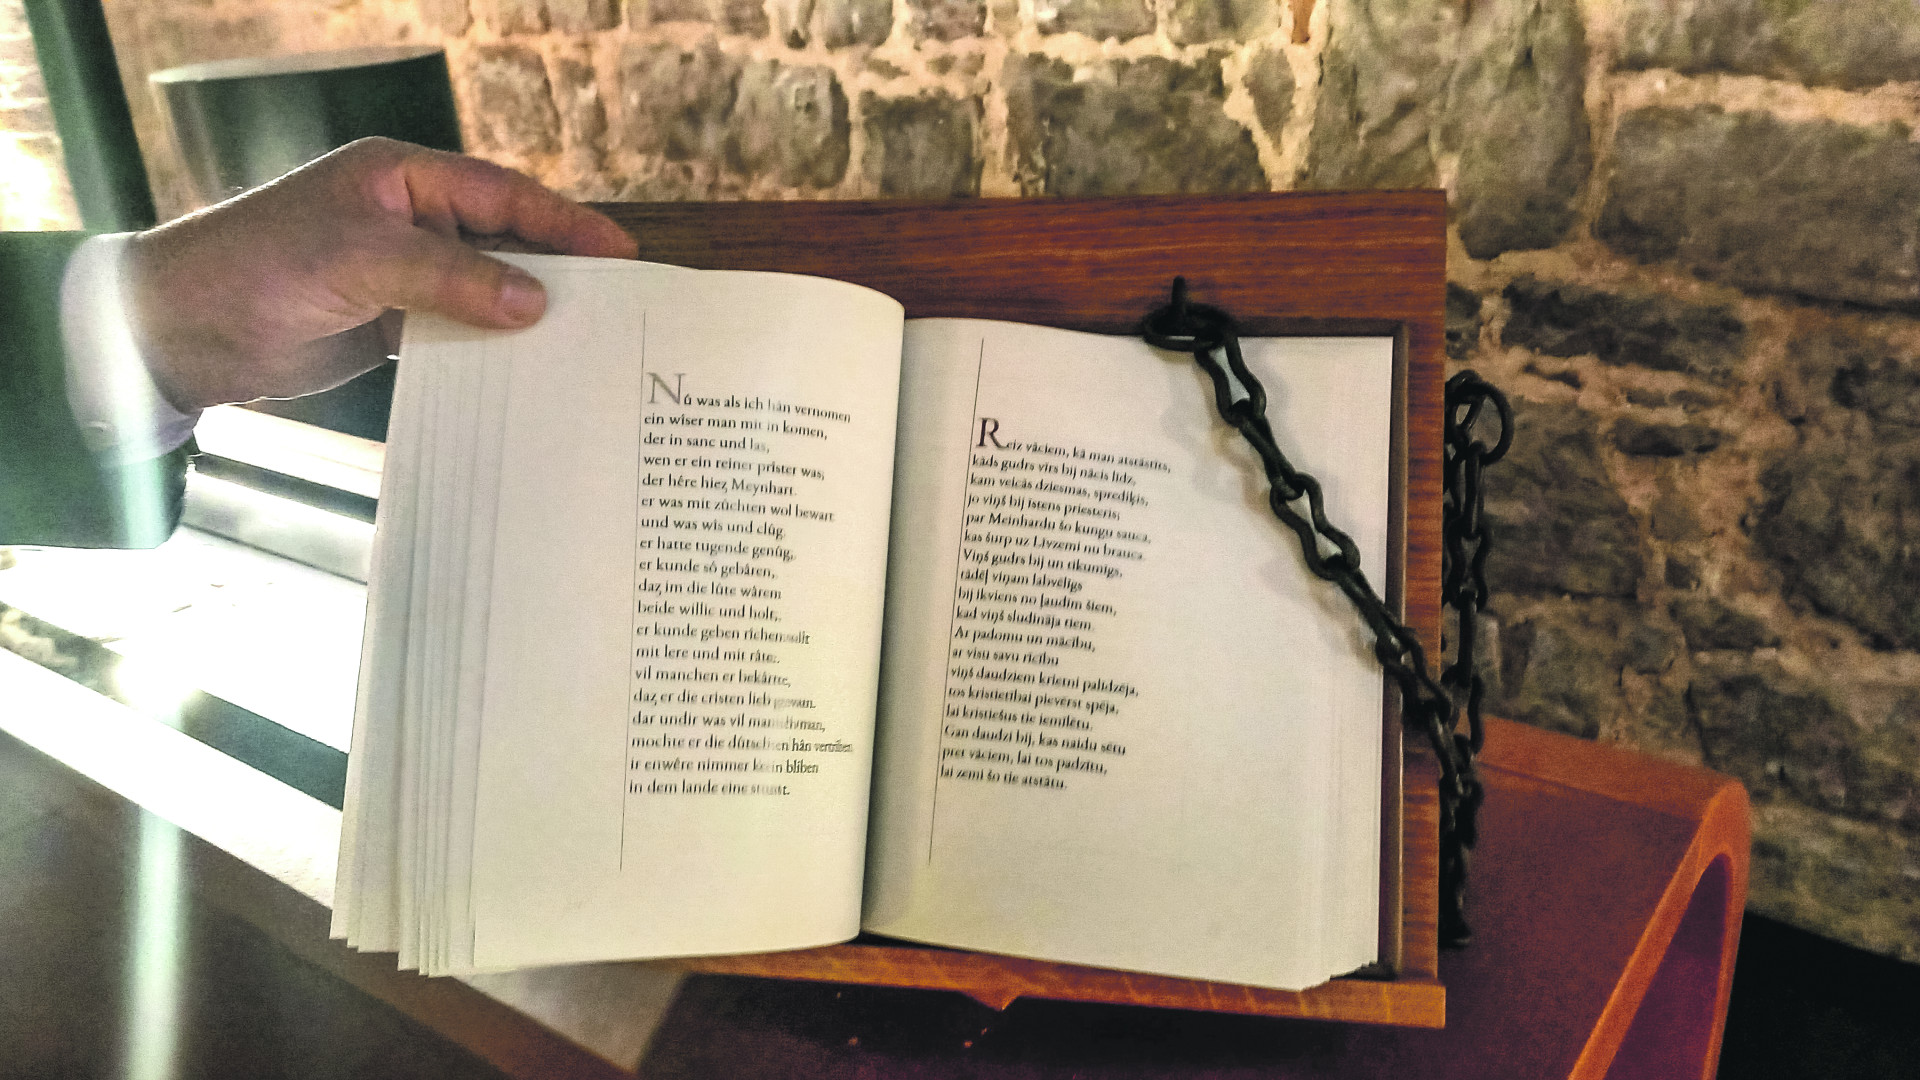 Nú was als ich hân vernomen
ein wîser man mit in komen,
der in sanc und las,
wen er ein reiner prîster was;
der hêre hieȥ Meynhart.
er was mit zûchten wol bewart
und was wîs und clûg.
er hatte tugende genûg,
er kunde sô gebâren,
daȥ im die lûte wârem
beide willic und holt,
er kunde geben rîchen solt
mit lere und mit râte.
vil manchen er bekârtte,
daȥ er die cristen lieb gewan.
dar undir was vil manich man,
mochte er die dûtschen hân vertriben
ir enwêre nimmer kein blîben
in dem lande eine stunt.
Reiz vāciem, kā man atstāstīts,
kāds gudrs vīrs bij nācis līdz,
kam veicās dziesmas, sprediķis,
jo viņš bij īstens priesteris;
par Meinhardu šo kungu sauca,
kas šurp uz Livzemi nu brauca.
Viņš gudrs bij un tikumīgs,
tādēļ viņam labvēlīgs
bij ikviens no ļaudīm šiem,
kad viņš sludināja tiem.
Ar padomu un mācību,
ar visu savu rīcību
viņš daudziem krietni palīdzēja,
tos kristietībai pievērst spēja,
lai kristiešus tie iemīlētu.
Gan daudzi bij, kas naidu sētu
pret vāciem, lai tos padzītu,
lai zemi šo tie atstātu.